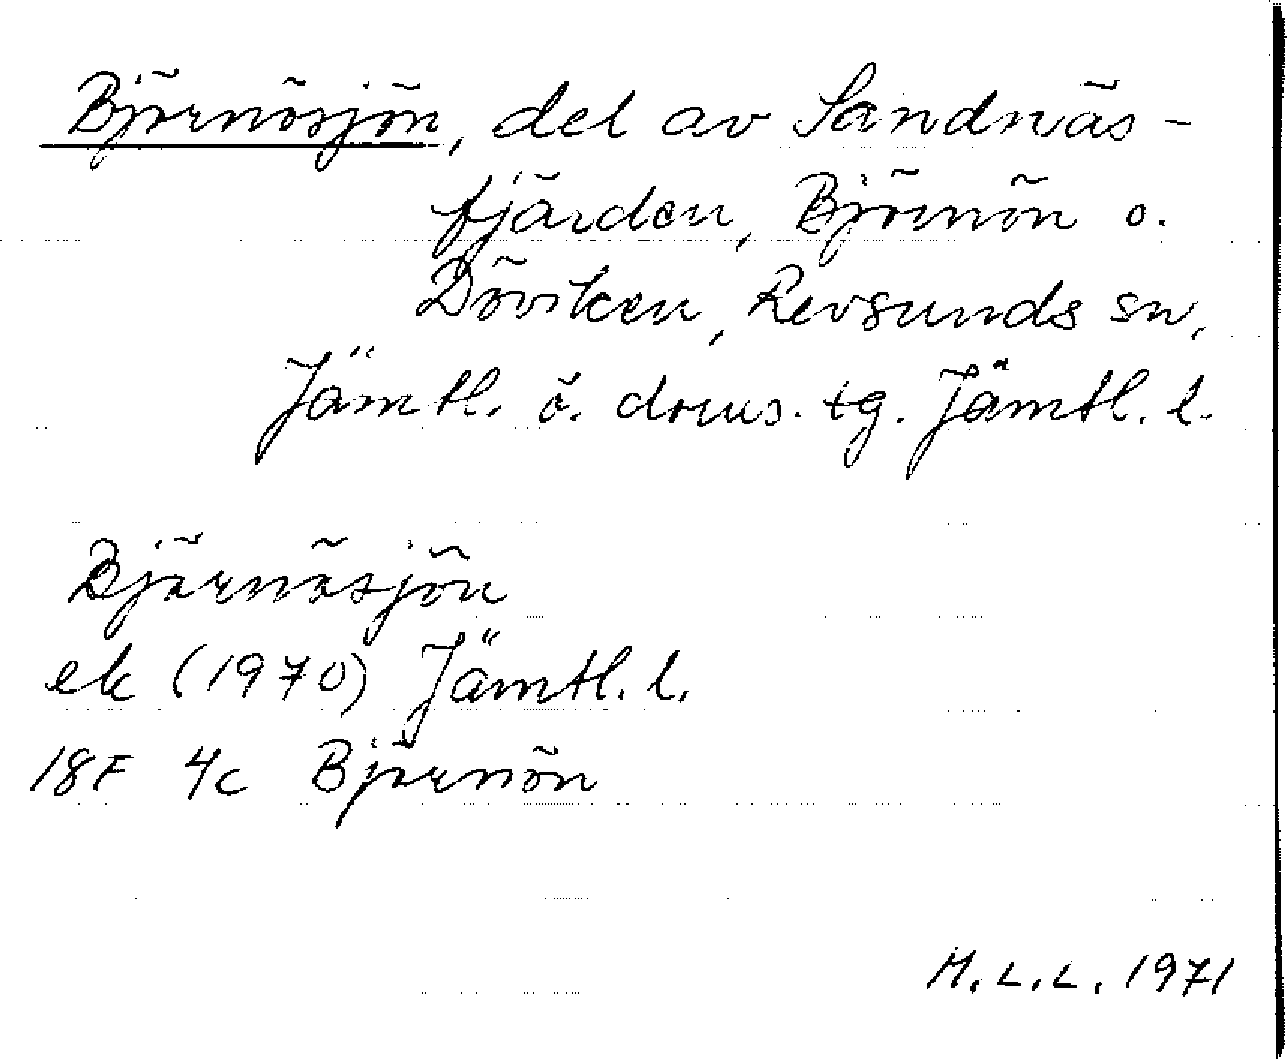 Björnösjön, del av Sandnäs-
fjärden, Björnön o.
Döviken, Revsunds sn,
Jämtl. ö. doms. tg. Jämtl. l.
Björnösjön
ek (1970) Jämtl. l.
18F 4c Björnön
M.L.L. 1971